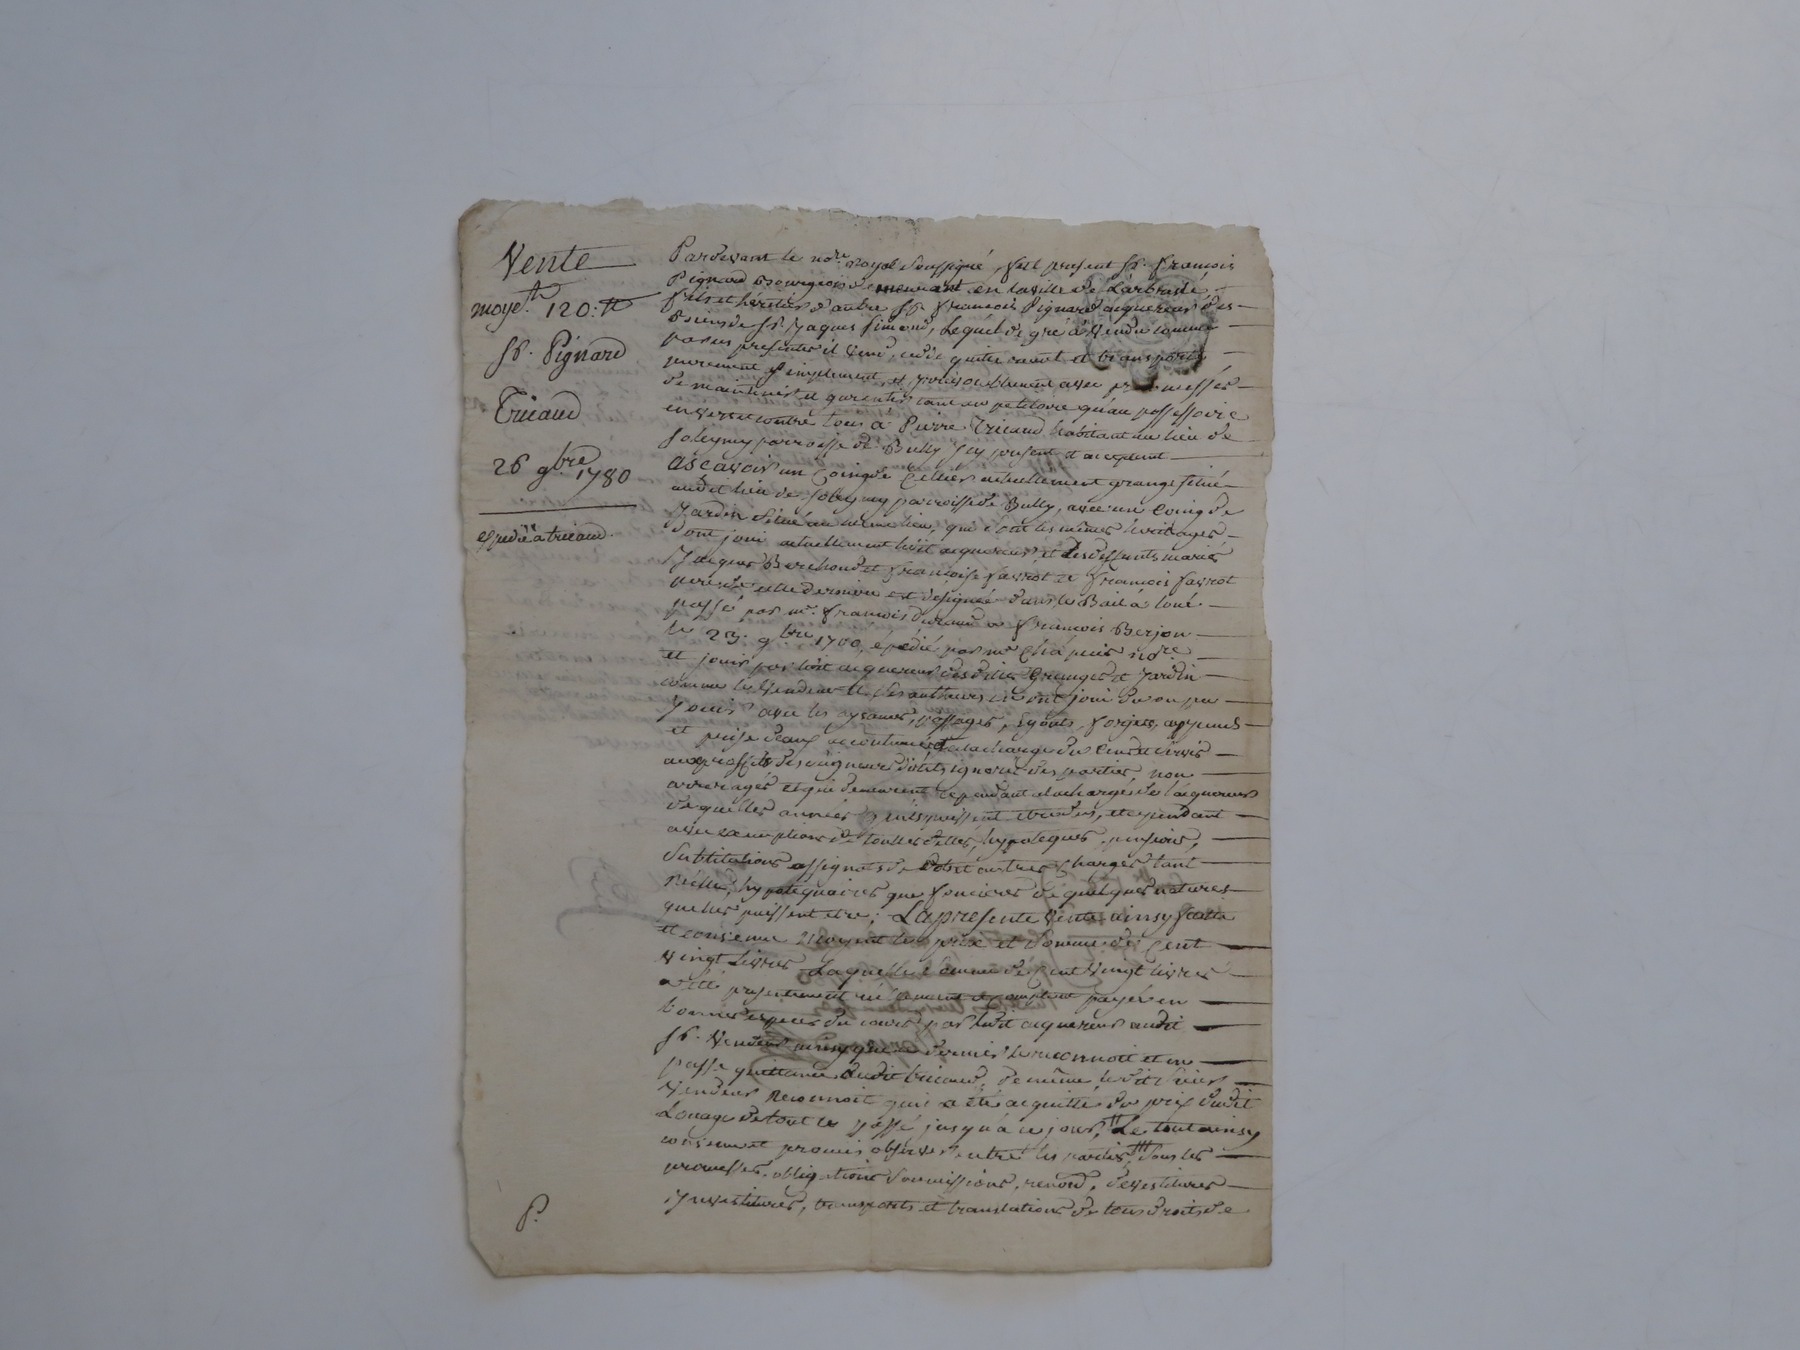 Vente
moye.t 120:tt
Sr. Pignard
Tricaud
26 9bre 1780
expedié à tricaud.
Pardevant le nore royal soussigné, fut present Sr. François
Pignard Bourgeois demeurant en la ville de Larbresle,
fils et héritier d'autre Sr. François Pignard acquereur des
Biens de Sr. Jaques Simond, Lequel de gré à vendu comme
par ces presentes il vend, cede, quitte, remet et transporte
purement simplement, et irrevocablement avec promesses
de maintenir et garentir tant au petitoire qu'au possessoire
envers et contre tous à Pierre Tricaud habitant au lieu de
Solegny parroisse de Bully icy present et acceptant
Ascavoir un Coing de Cellier actuellement grange situé
audit lieu de Solegny parroisse de Bully, avec un Coing de
Jardin situé au même lieu, qui sont les mêmes heritages
dont joui actuellement ledit acquereur et des deffunts mariés
Jacques Berchoud et françoise favrot et françois favrot
pere de cette derniere est designée dans le Bail à loué
passé par mr. françois durand a françois Berjon
le 23. 9bre 1700, expédié par mr Chapuis nore
et jouir par ledit acquereur desdites Granges et Jardin
comme le Vendeur et ses autheurs en ont joui du ou pu
Jouir avec les aysances, passages, Egouts, forjets, appends
et prise d'eaux accoutumées, à la charge du Cens et servis
aux proffits des seigneurs directs ignorés des parties, non
arreragés et qui demeurent cependant à la charge de l'acquereur
de quelles années qu'ils puissent etre dus, et cependant
avec exemptions de touttes dettes, hypoteques, pensions,
Substitutions assignats de dot et autres charges tant
réelles, hypotequaires que foncieres de quelques natures
quelles puissent etre; La presente Vente ainsy faitte
et convenue moyennant le prix et somme de Cent
vingt Livres Laquelle somme de Cent vingt livres
a été presentement réellement et comptant payée en
bonnes especes du cours par ledit acquereur audit
Sr. Vendeur ainsy que ce dernier le reconnoit et en
passe quittance audit tricaud, de même ledit sieur
Vendeur reconnoit qu'il a été acquitté du prix dudit
Louage de tout le passé jusqu'à ce jour, Le tout ainsy
convenu et promis observer entre les parties, sous les
promesses, obligations, soumissions, renond, devestitures
Investitures, transports et translations de tous droits de
P.